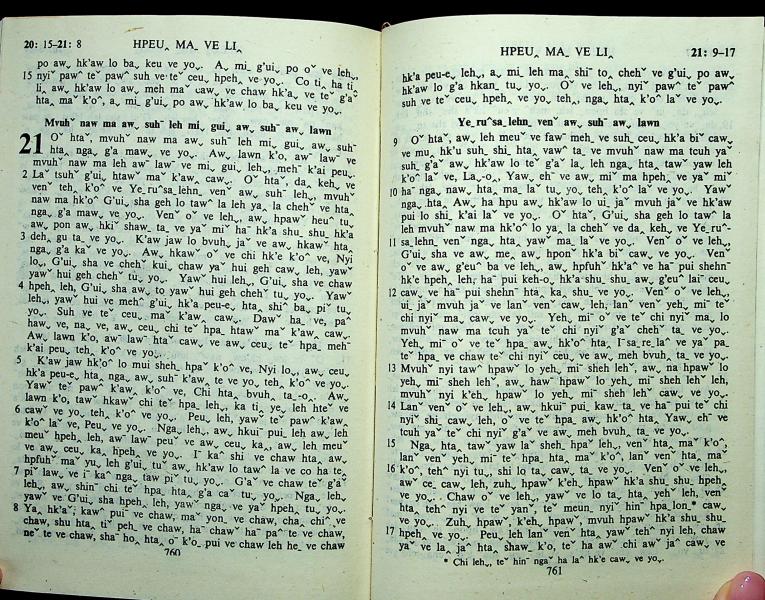 20: 15-21: 8 HPEU‸ MA_ VE LI‸
po aw˯ hk'aw lo ba˯ keu ve yo˯. A˯ mi˯ g'ui˯ po oˇ ve leh˯,
15 nyiˇ paw^ teˇ pawˇ suh veˉteˇ ceu˯ hpeh˯ ve yo˯. Co ti˯ ha ti˯
li˯ aw˯ hk'aw lo aw˯ meh maˇ caw˯ ve chaw hk'a˯ ve teˇ g'aˇ
hta˯ maˇ k'o^, a˯ mi˯ g'ui˯ po aw˯ hk'aw lo ba˯ keu ve yo˯.
Mvuhˉ naw ma aw˯ suhˉ leh mi˯ gui˯ aw˯ suhˉ aw˯ lawn
21 Oˇ htaˇ, mvuhˉ naw ma aw˯ suhˉ leh mi˯ gui˯ aw˯ suhˉ
hta˯ nga˯ g'a maw˯ ve yo˯. Aw˯ lawn k'o, aw˯ law^ ve
mvuhˉ naw ma leh aw˯ law^ ve mi˯ gui˯ leh˯, mehˉ k'ai peu˯.
2 La^ tsuhˇ g'ui˯ htawˇ maˇ k'aw˯ caw˯. Oˇ htaˇ, da˯ keh˯ ve
venˇ teh˯ k'o^ ve Ye_ru^sa_lehn_ venˇ aw˯ suhˉ leh˯, mvuhˉ
naw ma hk'o^ G'ui˯ sha geh lo taw^ la leh ya˯ la chehˇ ve hta
nga˯ g'a maw˯ ve yo˯. Venˇ oˇ ve leh˯, aw˯ hpawˇ heu^ tu˯
aw˯ pon aw˯ hkiˇ shaw˯ ta˯ ve yaˇ miˉ haˉ hk'a shu_ shu_ hk'a
3 deh˯ gu ta˯ ve yo˯. K'aw jaw lo bvuh˯ jaˇ ve aw˯ hkawˇ hta˯
nga˯ g'a ka^ ve yo˯. Aw˯ hkawˇ oˇ ve chi hk'e k'o^ ve, Nyi
lo˯, G'ui˯ sha ve chehˇ kui˯ chaw yaˇ hui geh caw˯ leh, yawˇ
yawˇ hui geh chehˇ tu˯ yo˯. Yawˇ hui leh˯, G'ui˯ sha ve chaw
4 hpeh˯ leh, G'ui˯ sha aw˯ to yawˇ hui geh chehˇ tu˯ yo˯. Yaw
leh˯, yawˇ hui ve meh^ g'ui˯ hk'a peu-e˯ hta˯ shi^ ba˯ piˇ tu˯
yo˯. Suh ve teˇ ceu˯ maˇ k'aw˯ caw˯. Dawˇ ha˯ ve, pa^
haw˯ ve, na˯ ve, aw˯ ceu˯ chi teˇ hpa_ htawˇ maˇ k'aw˯ caw˯.
Aw˯ lawn k'o, aw˯ law^ hta˯ caw˯ ve aw˯ ceu˯ teˇ hpa_ mehˉ
k'ai peu˯ teh˯ k'o^ ve yo˯.
5 K'aw jaw hk'o^ lo mui shehˉ hpaˇ k'o^ ve, Nyi lo˯, aw˯ ceu˯
hk'a peu-e˯ hta˯ nga˯ aw˯ suhˉ k'aw˯ te ve yo˯, teh˯ k'o^ ve yo˯.
Yawˇ teˇ paw^ k'aw˯ k'o^ ve, Chi hta˯ bvuh˯ ta_-o˯. Aw˯
lawn k'o, tawˇ hkawˇ chi teˇ hpa_ leh˯, ka ti˯ ye˯ leh hteˇ ve
6 cawˇ ve yo˯, teh˯ k'o^ ve yo˯. Peu leh˯ yawˇ teˇ paw^ k'aw˯
k'o^ la ve, Peu ve yo˯. Nga˯ leh˯, aw˯ hkuiˉ pui˯ leh aw˯ leh
meuˇ hpeh˯ leh, aw˯ law^ peuˇ ve aw˯ ceu˯ ka˯ aw˯ leh meuˇ
ve aw˯ ceu˯ ka˯ hpeh˯ ve yo˯. Iˉ ka^ shi˯ ve chaw hta˯ aw˯
hpfuhˇ maˇ yu˯ leh g'ui˯ tuˇ aw˯ hk'aw lo taw^ la ve co ha te˯
7 piˇ law˯ ve iˉ ka^ nga˯ taw piˇ tu˯ yo˯. G'aˇ ve chaw teˇ g'aˇ
leh˯, aw˯ shinˇ chi teˇ hpa_ hta˯ g'a caˇ tu˯ yo˯. Nga˯ leh˯
yawˇ ve G'ui˯ sha hpeh˯ leh, yawˇ nga˯ ve yaˇ hpeh˯ tu˯ yo˯.
8 Ya˯ hk'aˇ, kaw^ puiˉ ve chaw, maˇ yon˯ ve chaw, cha˯ chi^ ve
chaw, shu hta˯ tiˇ peh˯ ve chaw, haˇ chawˇ haˇ pa^ te ve chaw,
neˇ te ve chaw, shaˉ ho˯ hta˯ oˉ k'o˯ pui ve chaw leh he˯ ve chaw
760
HPEU‸ MA_ VE LI‸ 21: 9-17
hk'a peu-e˯ leh˯, a˯ mi˯ leh ma˯ shiˉ to˯ chehˇ ve g'ui˯ po aw˯
hk'aw lo g'a hkan_ tu˯ yo˯. Oˇ ve leh˯, nyiˇ paw^ teˇ paw^
suh ve teˇ ceu˯ hpeh˯ ve yo˯ teh˯, nga˯ hta˯ k'o^ la ve yo˯.
Ye_ru^sa_lehn_ venˇ aw˯ suhˉ aw˯ lawn
9 Oˇ htaˇ, aw˯ leh meuˇ ve faw˯ meh˯ ve suh˯ ceu˯ hk'a biˇ caw˯
ve mu˯ hk'u suh˯ shi˯ hta˯ vaw^ ta˯ ve mvuhˉ naw ma tcuh yaˇ
suh˯ g'aˇ aw˯ hk'aw lo te˯ g'aˇ la˯ leh nga˯ hta˯ tawˇ yaw leh
k'o^ la ve, La˯-o˯, Yaw˯ ehˉ ve aw˯ miˇ ma hpeh˯ ve yaˇ miˇ
10 haˉ nga˯ naw˯ hta˯ ma_ laˇ tu˯ yo˯, teh˯ k'o^ la ve yo˯. Yawˇ
nga˯ hta˯ Aw˯ ha hpu aw˯ hk'aw lo ui˯ jaˇ mvuh jaˇ ve hk'aw
pui lo shi˯ k'ai la ve yo˯. Oˇ htaˇ, G'ui˯ sha geh lo taw^ la
leh mvuhˉ naw ma hk'o^ lo ya˯ la chehˇ ve da˯ keh˯ ve Ye_ru^-
11 sa_lehn_ venˇ nga˯ hta˯ yawˇ ma_ la ve yo˯. Venˇ oˇ ve leh˯,
G'ui˯ sha ve aw˯ me˯ aw˯ hponˉ hk'a biˇ caw˯ ve yo˯. Venˇ
oˇ ve aw˯ g'eu^ ba ve leh˯, aw˯ hpfuhˇ hk'a^ ve haˇ pui shehnˉ
hk'e hpeh˯ leh˯ haˇ pui keh-o˯ hk'a shu_ shu_ aw˯ g'eu^ laiˉ ceu˯
12 caw˯ ve haˇ pui shehnˉ hta˯ ka˯ shu_ ve yo˯. Venˇ oˇ ve leh˯,
ui˯ jaˇ mvuh jaˇ ve lanˇ venˇ caw˯ leh; lanˇ venˇ yeh˯ miˉ teˇ
chi nyiˇ ma˯ caw˯ ve yo˯. Yeh˯ miˉ oˇ ve teˇ chi nyiˇ ma˯ lo
mvuhˉ naw ma tcuh yaˇ teˇ chi nyiˇ g'aˇ chehˇ ta˯ ve yo˯.
Yeh˯ miˉ oˇ ve teˇ hpa_ aw˯ hk'o^ hta˯ Iˉsa_re_la^ ve yaˇ pa˯
te˯ hpa˯ ve chaw teˇ chi nyiˇ ceu˯ ve aw˯ meh bvuh˯ ta˯ ve yo˯.
13 Mvuhˉ nyi tawˇ hpawˇ lo yeh˯ miˉ shehˇ leh˯, aw˯ na hpawˇ lo
yeh˯ miˉ shehˇ leh, aw˯ hawˉ hpawˇ lo yeh˯ miˉ shehˇ leh,
mvuhˉ nyi k'eh˯ hpawˇ lo yeh˯ miˉ shehˇ leh˯ caw˯ ve yo˯.
14 Lanˇ venˇ oˇ ve leh˯, aw˯ hkuiˉ pui˯ kaw˯ ta˯ ve haˇ pui teˇ chi
nyiˇ shi˯ caw˯ leh, oˇ ve teˇ hpa_ aw˯ hk'o^ hta˯ Yaw˯ ehˉ ve
tcuh yaˇ teˇ chi nyiˇ g'aˇ ve aw˯ meh bvuh˯ ta˯ ve yo˯.
15 Nga˯ hta˯ tawˇ yaw la^ sheh˯ hpaˇ leh˯, venˇ hta˯ maˇ k'o^,
lanˇ venˇ yeh˯ miˉ teˇ hpa_ hta˯ maˇ k'o^ lanˇ venˇ hta˯ maˇ
16 k'o^, teh^ nyi tu˯, shi lo ta˯ caw˯ ta˯ ve yo˯. Venˇ oˇ ve leh˯,
aw˯ ce˯ caw˯ leh, zuh˯ hpawˇ k'eh˯ hpawˇ hk'a shu_ shu_ hpeh˯
ve yo˯. Chaw oˇ ve leh˯, yawˇ ve lo ta˯ hta˯ yehˇ leh, venˇ
hta˯ teh^ nyi ve teˇ yanˇ, teˇ meun_ nyiˇ hinˉ hpa_lon_* caw˯
ve yo˯. Zuh˯ hpawˇ, k'eh˯ hpawˇ, mvuh hpawˇ hk'a shu_ shu_
17 hpeh˯ ve yo˯. Peu˯ leh lanˇ venˇ hta˯ yawˇ teh^ nyi leh, chaw
yaˇ ve la˯ ja^ hta˯ shaw˯ k'o, teˇ ha aw˯ chi aw˯ ja^ caw˯ ve
* Chi leh˯, teˇ hinˉ ngaˇ ha la^ hk'e caw˯ ve yo˯.
761